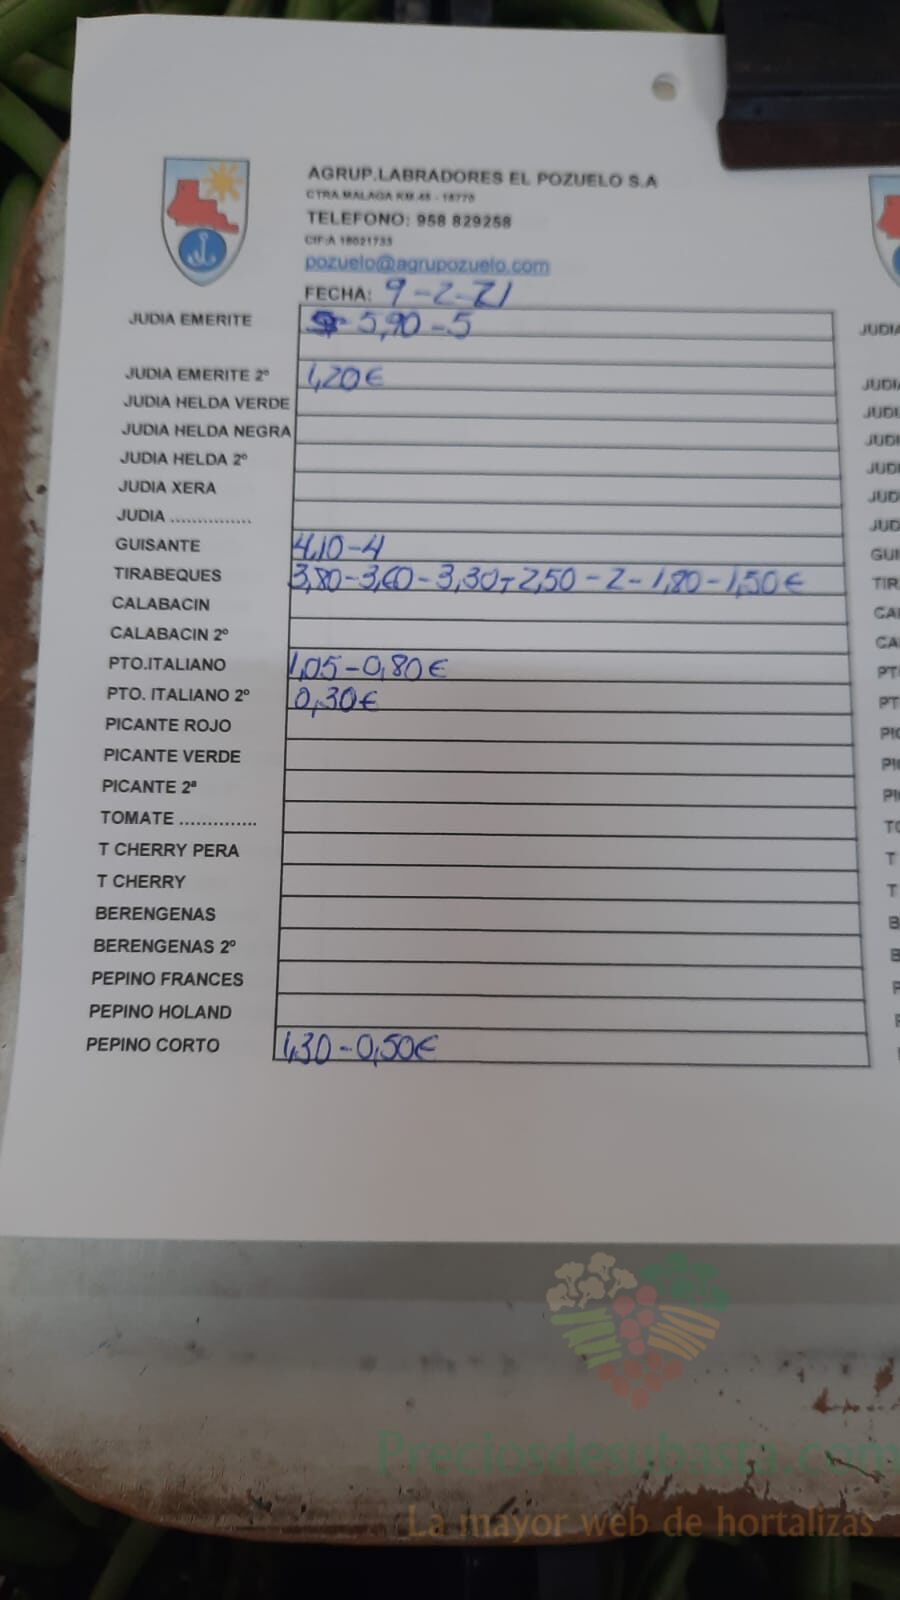 AGRUP.LABRADORES EL POZUELO S.A
CTRA.MALAGA KM.45 - 18770
TELEFONO: 958 829258
CIF:A 18021733
pozuelo@agrupozuelo.com
FECHA: 9-2-21
JUDIA EMERITE 5,90-5
JUDIA EMERITE 2º 1,20€
JUDIA HELDA VERDE
JUDIA HELDA NEGRA
JUDIA HELDA 2º
JUDIA XERA
JUDIA ...............
GUISANTE 4,10-4
TIRABEQUES 3,80-3,60-3,30-2,50-2-1,80-1,50€
CALABACIN
CALABACIN 2º
PTO.ITALIANO 1,05-0,80€
PTO. ITALIANO 2º 0,30€
PICANTE ROJO
PICANTE VERDE
PICANTE 2ª
TOMATE ..............
T CHERRY PERA
T CHERRY
BERENGENAS
BERENGENAS 2º
PEPINO FRANCES
PEPINO HOLAND
PEPINO CORTO 1,30-0,50€
Preciosdesubasta.com
La mayor web de hortalizas